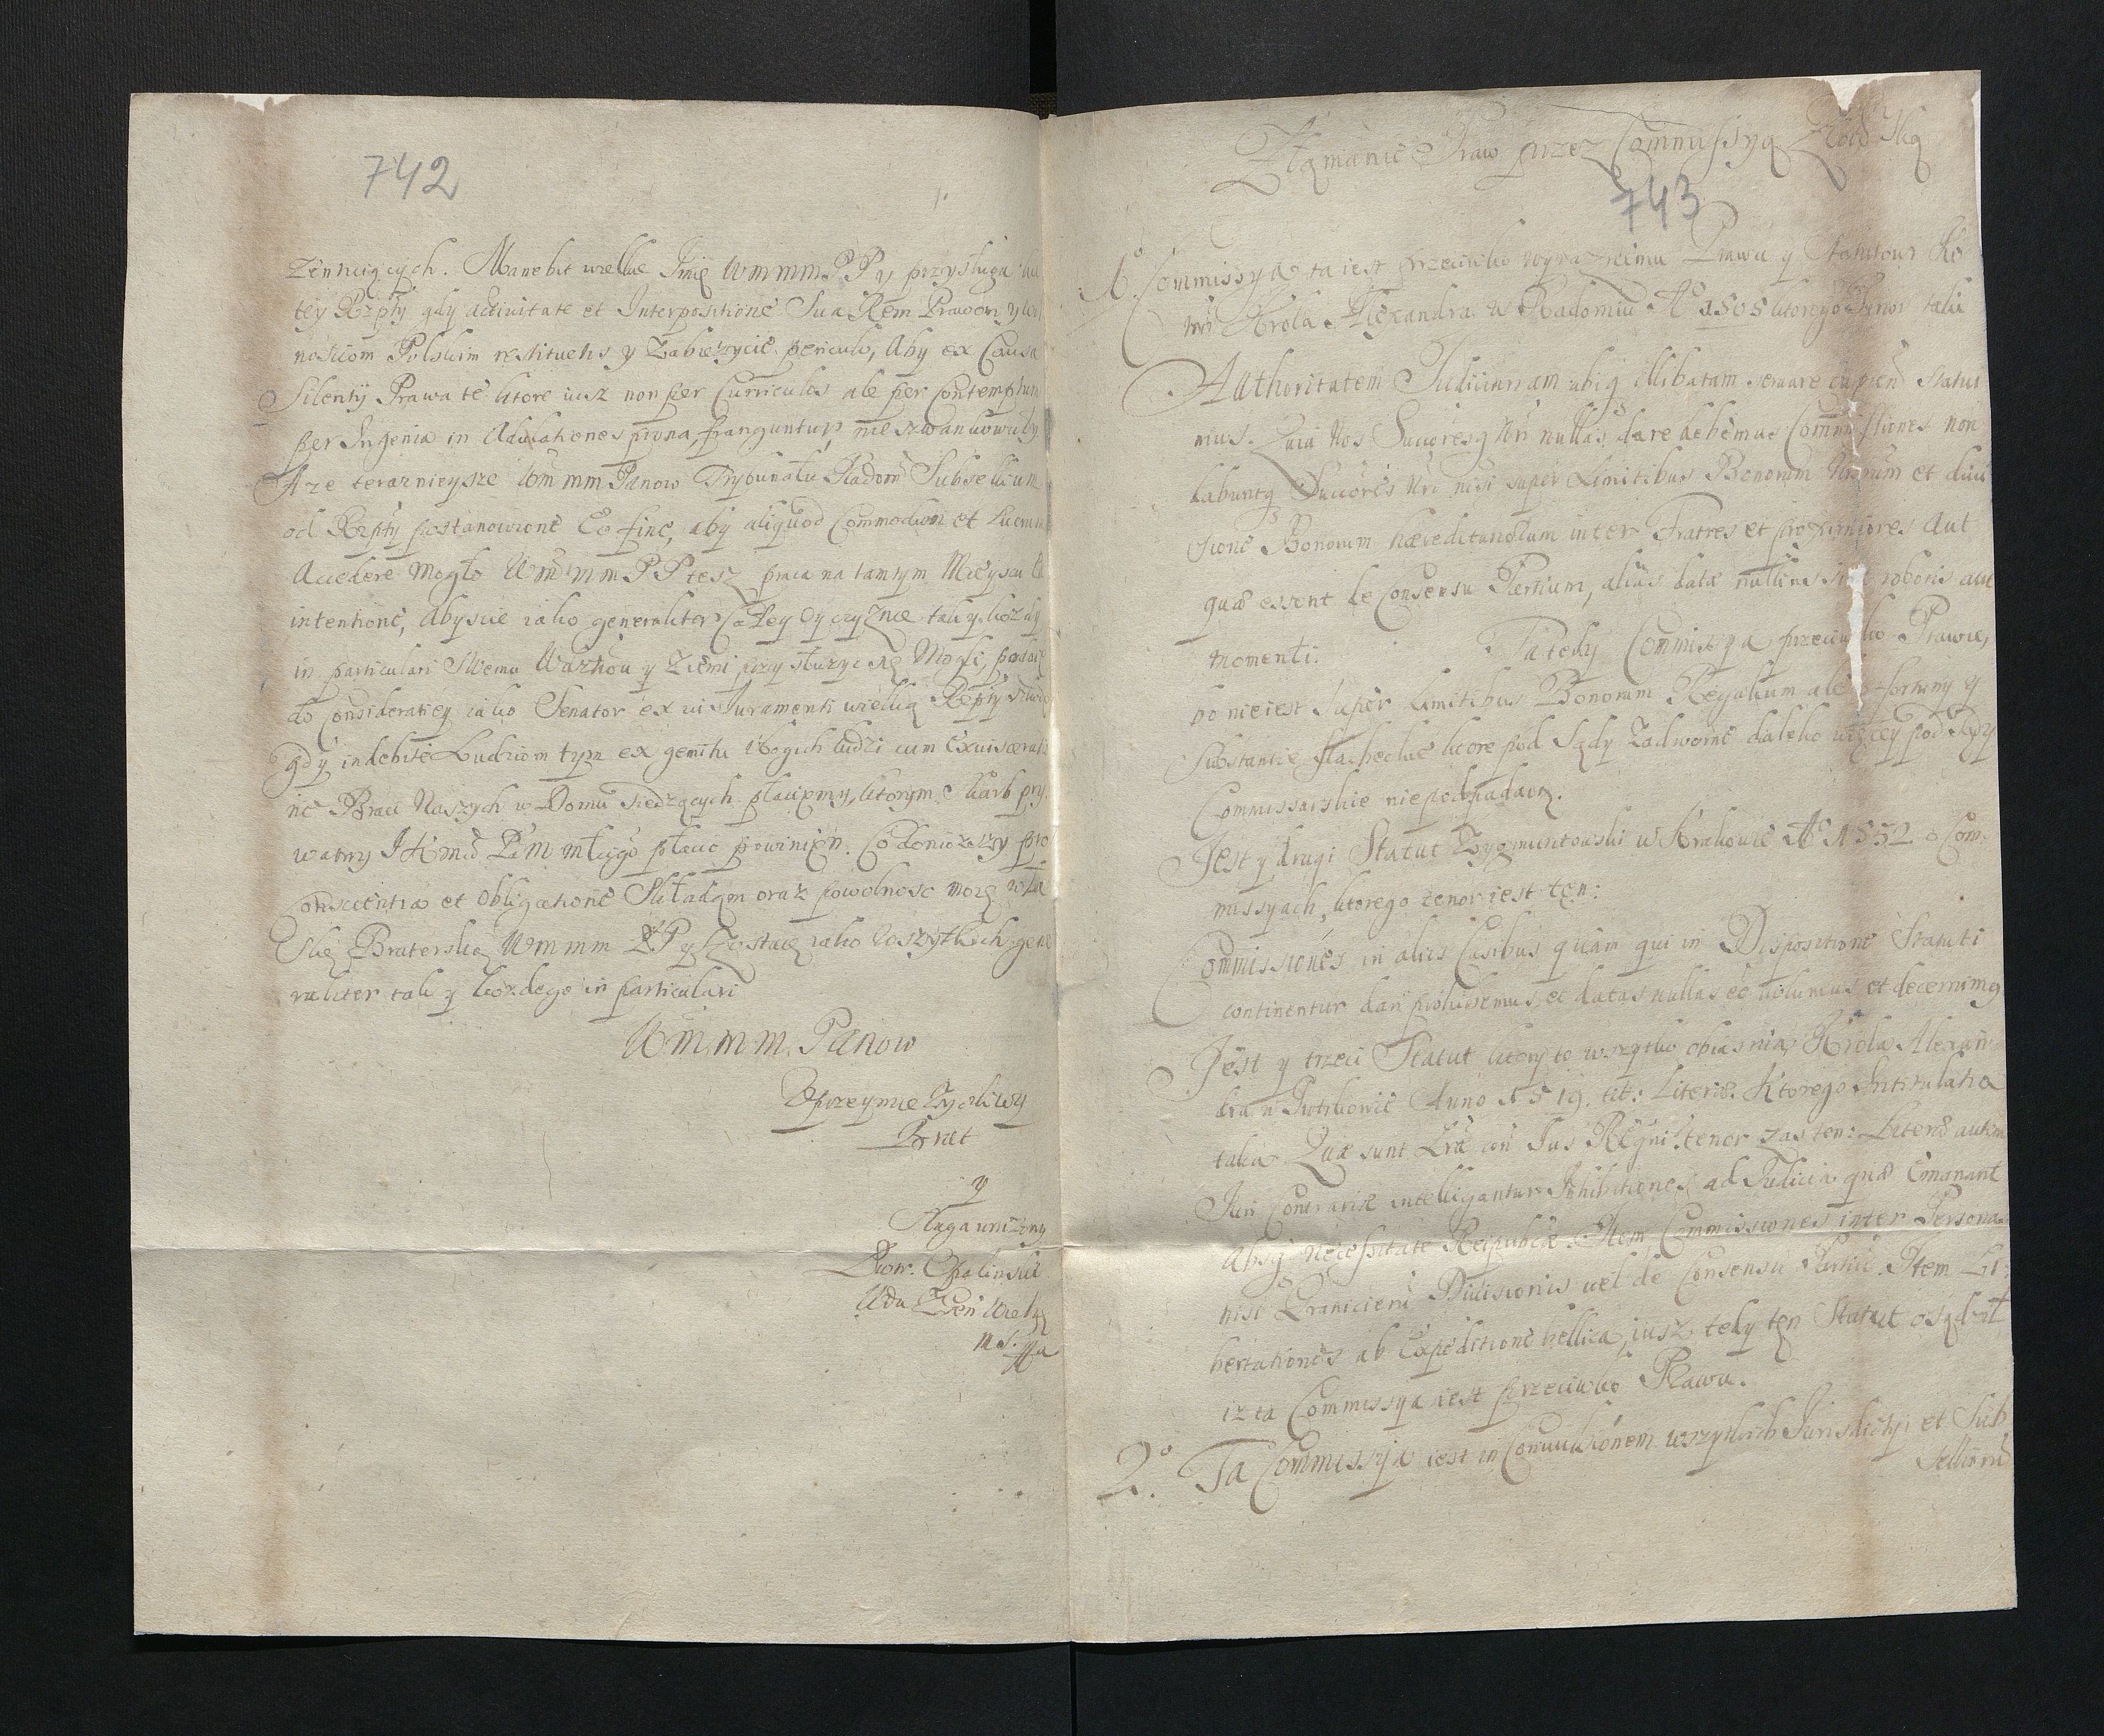 742
żęnuiących. Manebit wielkie Imię Wmmm PP y przysługa ku
tey Rzpty gdy activitate et Interpositione Sua Rem Prawom y wol
nosciom Polskim restituetis y zabieżycie periculo, Aby ex Causa
Silentij Prawa te ktore iusz non per Curriculos ale per Contemptum
per Ingenia in Adulationes prona, franguntur, nie szwankowały
A ze teraznieysze Wm mm Panow Trybunału Radom Subsellium
od Rzpty postanowione Eo fine, aby aliquod Commodum et Lucrum
Accedere Mogło Wm mm PP tesz praca na tamtym Mieyscu
intentione, Abyscie iako generaliter Całey Oyczyznie tak y kozdy
in particulari Swemu Wdztwu y Ziemi przysłuzyc się Mogli, podaię
do Consideratiey iako Senator ex vi Juramenti wielką Rzpty
gdy indebite Ludziom tym ex gemitu ubogich ludzi cum Exviscerati
ne Braci Naszych w Domu siedzących płacięmy, ktorym Skarb pry
watny JKMci Pa M Młgo płacic powinięn. Co doniozszy pro
Conscientia et Obligatione Składąm oraz powolnosc moię
Skię Braterskię Wm mm PP y Zostaię iako Wszytkich gene
raliter tak y kozdego in particulari
Wm. m m. Panow
Uprzeymie Zyczliwy
Brat
y
Sługa uniżony
Piotr Opalinski
Wda Gen Wielg
mp
743
Złąmanie Praw przez Commissyą
1º. Commissya ta iest przeciwko wyraznemu Prawu y Statutowi Ko
mi Krola Alexandra w Radomiu Aº 1505 ktorego Tenor taki
Authoritatem Judiciariam ubiq illibatam servare cupien Statui
mus. Quia Nos Successoresq Nri nullas dare debemus Commissiones non
dabuntq Successores Nri nisi super Limitibus Bonorum Nrorum et divi
sione Bonorum hæreditandum inter Fratres et proximiores Aut
quæ essent de Consensu Partium, alias datæ nullius sint roboris aut
momenti. Ta tedy Commissya przeciwko Prawu,
bo nie iest super Limitibus Bonorum Regalium ale o fortuny y
Substantie szlacheckie ktore pod Sądy Zadworne daleko więcey pod Sądy
Commissarskie niepodpadaią.
Jest y drugi Statut Zygmuntowski w Krakowie Aº 1532 o Com
missyach, ktorego tenor iest ten:
Commissiones in aliis Casibus quam qui in Dispositione Statuti
continentur dari prohibemus, et datas nullas ee volumus et decernimq
Jest y trzeci Statut ktory to wszytko obiasnia, Krola Alexan
dra w Piotrkowie Anno 1519. tit: Literæ. Ktorego Intitulatia
taka Quæ sunt Lræ con Jus Regni: tenor zas ten: Literæ autem
Juri Contrariæ intelligantur Inhibitiones ad Judicia quæ Emanant
absq necessitate Reipubcæ. Item Commissiones inter Personas
nisi Granicieru Divisionis vel de Consensu Partiu. Item Li
bertationes ab Expeditione bellica, iusz tedy ten Statut osądził
iz ta Commissya iest przeciwko Prawu.
2º. Ta Commissya iest in Convulsionem wszytkich Jurisdictyi et Sub
selliorum